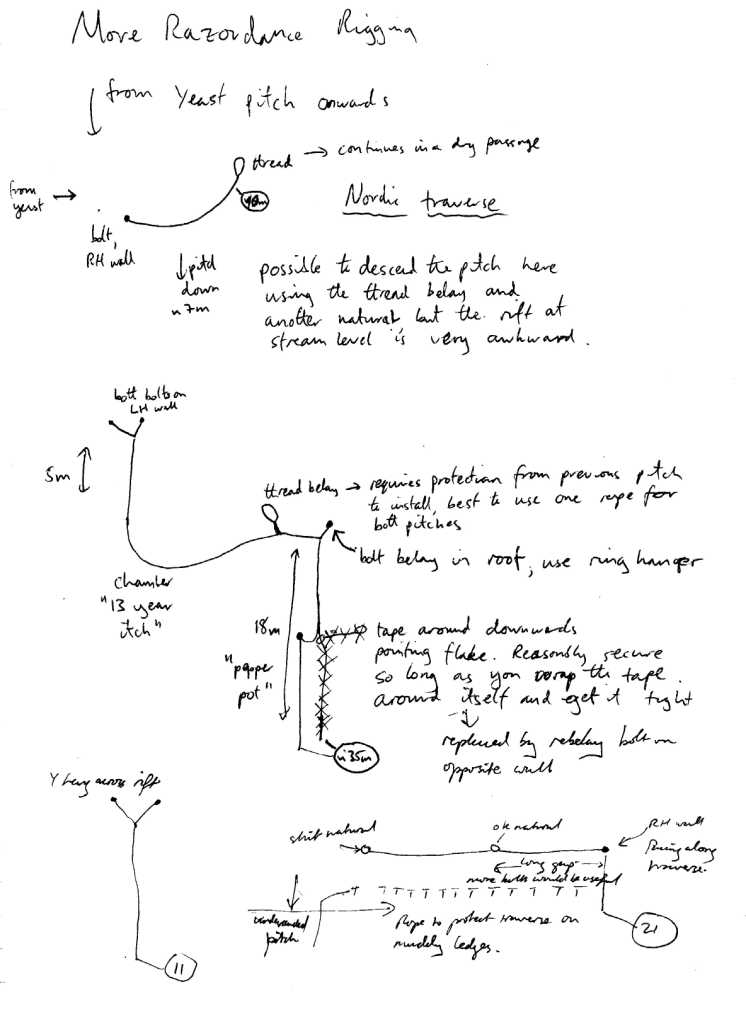 More Razordance Rigging
from Yeast pitch onwards
thread → continues in a dry passage
from yeast →
Nordic traverse
bolt,
RH wall
↓pitch
down
~7m
possible to descend the pitch here
using the thread belay and
another natural but the rift at
stream level is very awkward.
both bolts on
LH wall
5m
thread belay → requires protection from previous pitch
to install, best to use one rope for
both pitches
bolt belay in roof, use ring hanger
Chamber
"13 year
itch"
18m
"pepper
pot"
tape around downwards
pointing flake. Reasonably secure
so long as you wrap the tape
around itself and get it tight
replaced by rebelay bolt on
opposite wall
~35m
Y hang across rift
11
shit natural
ok natural
RH wall
along
traverse.
long gap
more bolts would be useful
pitch
Rope to protect traverse on
muddy ledges.
21